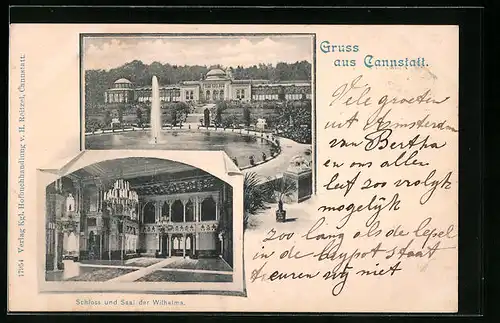 Gruss
aus Cannstatt.
Vele groeten
uit Amsterdam
van Bertha
en ons allen
leef zoo vrolyk
mogelyk
zoo lang als de lepel
in de bryppot staat
treuren wy niet
Schloss und Saal der Wilhelma.
17954 Verlag Kgl. Hofbuchhandlung v. H. Reitzel, Cannstatt.